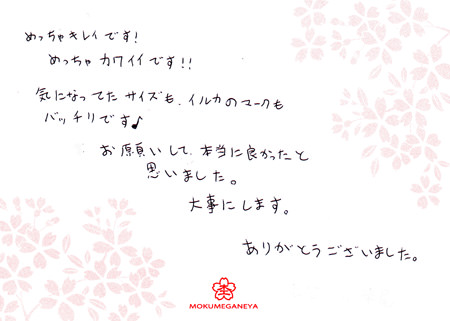 めっちゃキレイです!
めっちゃカワイイです!!
気になってたサイズも、イルカのマークも
バッチリです♪
お願いして、本当に良かったと
思いました。
大事にします。
ありがとうございました。
MOKUMEGANEYA